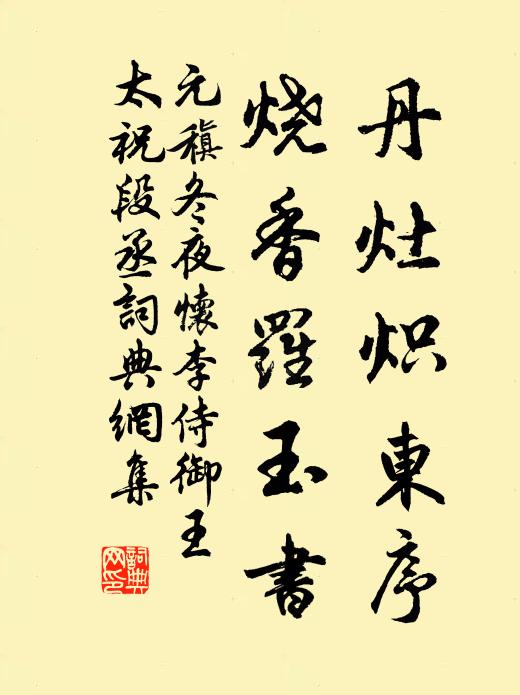 丹灶炽東序
烧香羅玉書
元稹冬夜懷李侍御王
太祝段丞詞典網集
詞典網印